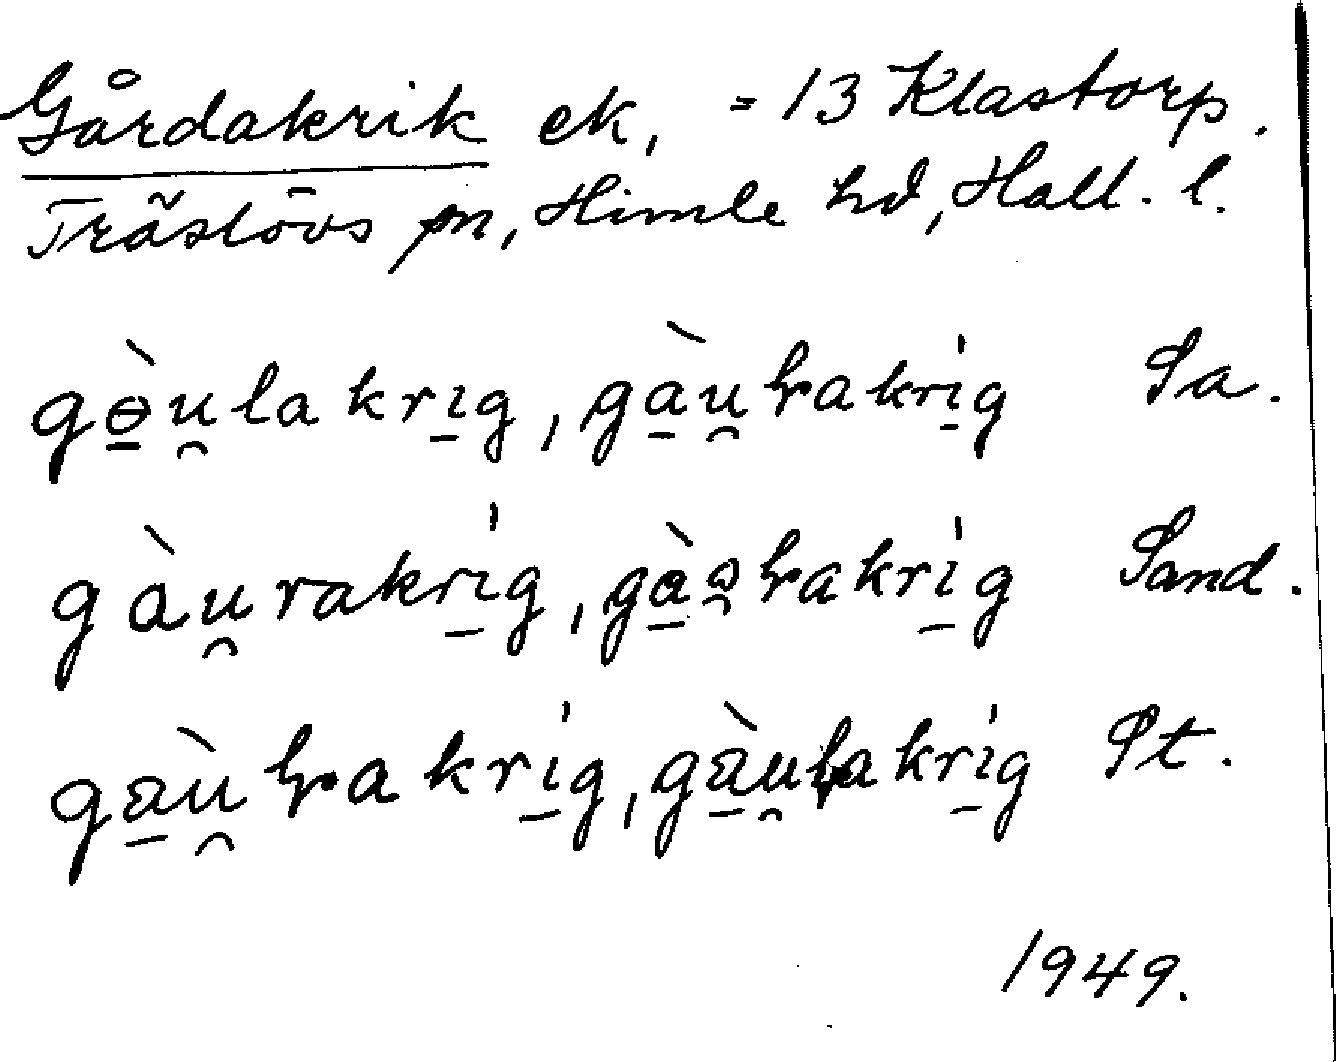 Gårdakrik ek, = 13 Klastorp.
Träslövs sn, Himle hd, Hall. l.
gɵ̀u̯lakrig, gàu̯ɽakrìg Sa.
gàu̯rakrìg, gàɔ̯ɽakrìg Sand.
gaù̯ɽakrìg, gàu̯ɽakrìg St.
1949.